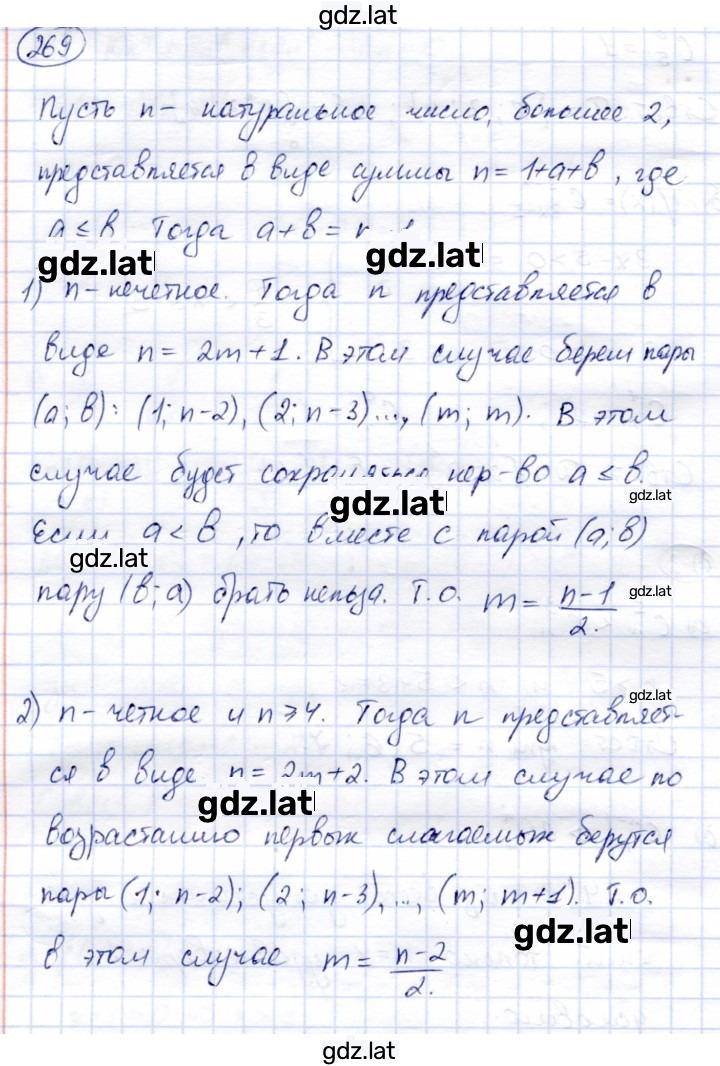 gdz.lat
269
Пусть n - натуральное число, большее 2,
представляется в виде суммы n = 1+a+b, где
a ≤ b Тогда a+b =
gdz.lat
gdz.lat
1) n - нечетное. Тогда n представляется в
виде n = 2m+1. В этом случае берем пары
(a; b): (1; n-2), (2; n-3)..., (m; m). В этом
случае будет нер-во a ≤ b.
gdz.lat
Если a < b, то вместе с парой (a; b)
gdz.lat
пару (b; a) брать нельза. Т.О. m = (n-1)/2.
gdz.lat
gdz.lat
2) n - четное и n ⩾ 4. Тогда n представляет-
ся в виде n = 2m+2. В этом случае по
gdz.lat
возрастанию первых слагаемых берутся
пары (1; n-2); (2; n-3), ..., (m; m+1). Т.О.
gdz.lat
в этом случае m = (n-2)/2.
gdz.lat